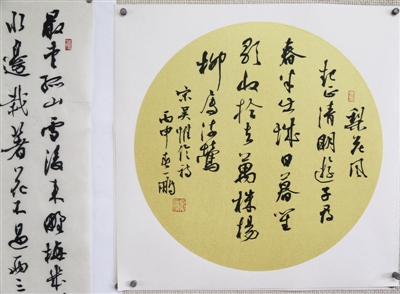 梨花风
起正清明游子寻
春半出城日暮笙
歌收拾去万株杨
柳属流鶯
宋吴惟信诗
丙申 鹏
最 孤山雪後来野梅
边栽著花不过两三